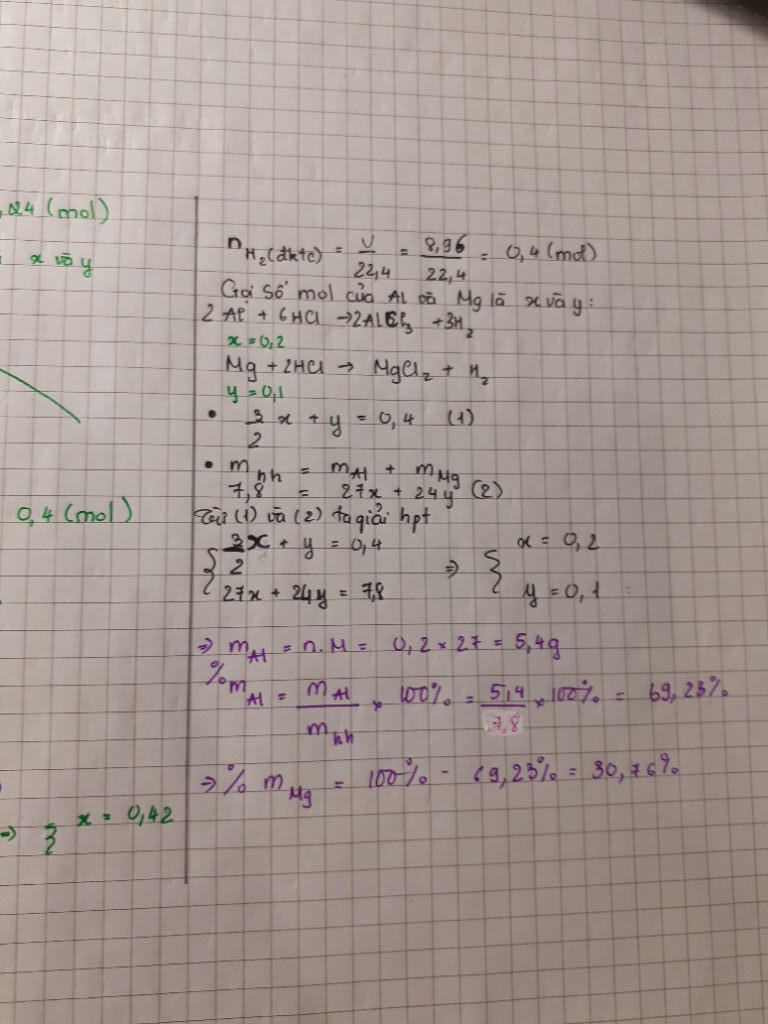 ,24 (mol)
x và y
0,4 (mol)
=> { x = 0,42
n H₂ (đktc) = V/22,4 = 8,96/22,4 = 0,4 (mol)
Gọi số mol của Al và Mg là x và y:
2Al + 6HCl → 2AlCl₃ + 3H₂
x = 0,2
Mg + 2HCl → MgCl₂ + H₂
y = 0,1
• 3/2 x + y = 0,4 (1)
• m hh = m Al + m Mg
7,8 = 27x + 24y (2)
Từ (1) và (2) ta giải hpt
{ 3/2 x + y = 0,4 => { x = 0,2
27x + 24y = 7,8 y = 0,1
=> m Al = n.M = 0,2 × 27 = 5,4g
%m Al = m Al/m hh × 100% = 5,4/7,8 × 100% = 69,23%
=> % m Mg = 100% - 69,23% = 30,76%